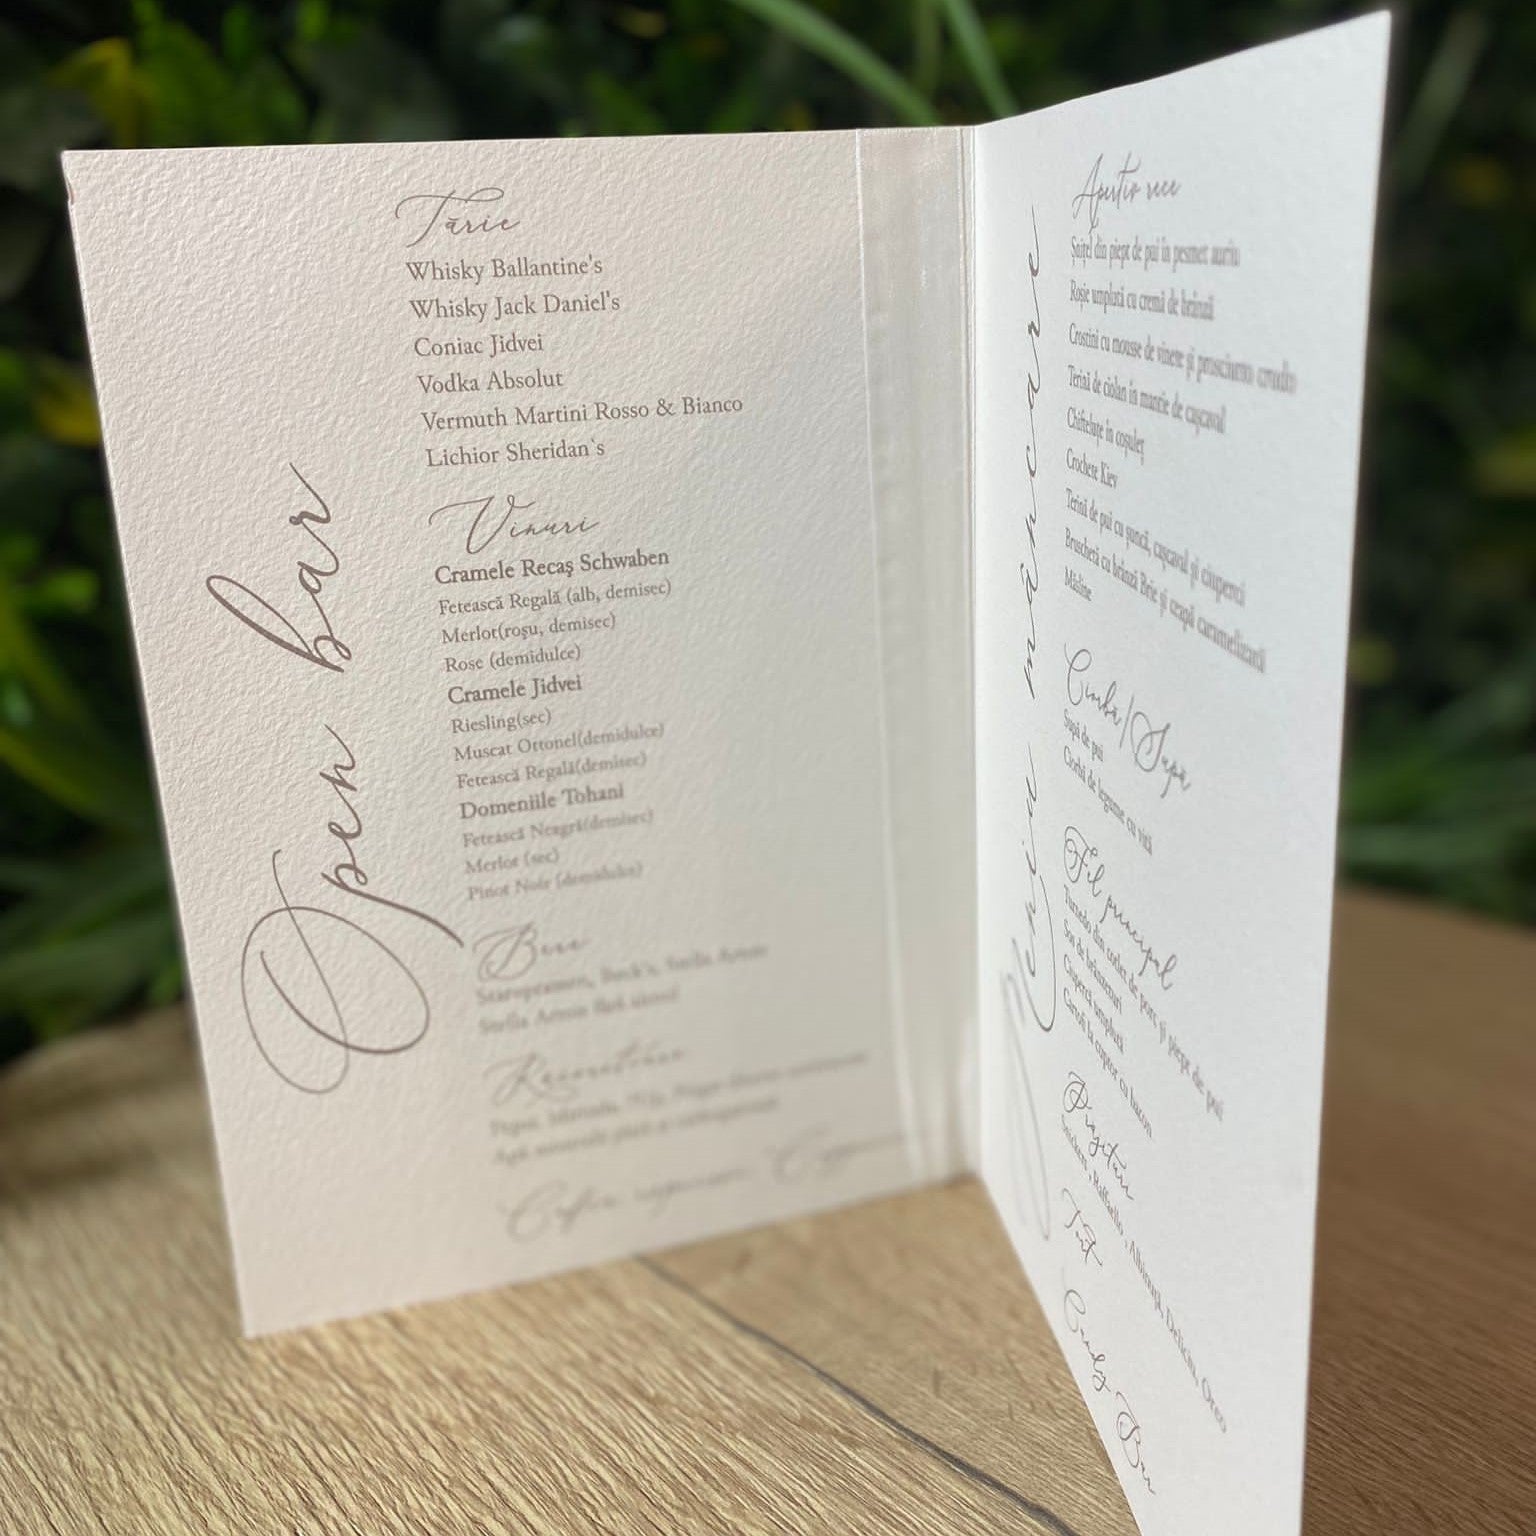 Open bar
Tărie
Whisky Ballantine's
Whisky Jack Daniel's
Coniac Jidvei
Vodka Absolut
Vermuth Martini Rosso & Bianco
Lichior Sheridan`s
Vinuri
Cramele Recaş Schwaben
Fetească Regală (alb, demisec)
Merlot(roşu, demisec)
Rose (demidulce)
Cramele Jidvei
Riesling(sec)
Muscat Ottonel(demidulce)
Fetească Regală(demisec)
Domeniile Tohani
Fetească Neagră(demisec)
Merlot (sec)
Pinot Noir (demidulce)
Bere
Staropramen, Beck's, Stella Artois
Stella Artois fără alcool
Răcoritoare
Apă minerală plată și carbogazoasă
Meniu mâncare
Aperitiv rece
Șnițel din piept de pui în pesmet auriu
Roșie umplută cu cremă de brânză
Crostini cu mousse de vinete și prosciutto crudo
Terină de ciolan în mantie de cașcaval
Chifteluțe în coșuleț
Crochete Kiev
Terină de pui cu șuncă, cașcaval și ciuperci
Bruschetă cu brânză Brie și ceapă caramelizată
Măsline
Ciorbă/Supă
Supă de pui
Ciorbă de legume cu vită
Fel principal
Turnedo din cotlet de porc și piept de pui
Sos de brânzeturi
Ciupercă umplută
Cartofi la cuptor cu bacon
Prăjituri
Snickers, Raffaello, Albinuță, Delicia, Oreo
Tort
Candy Bar